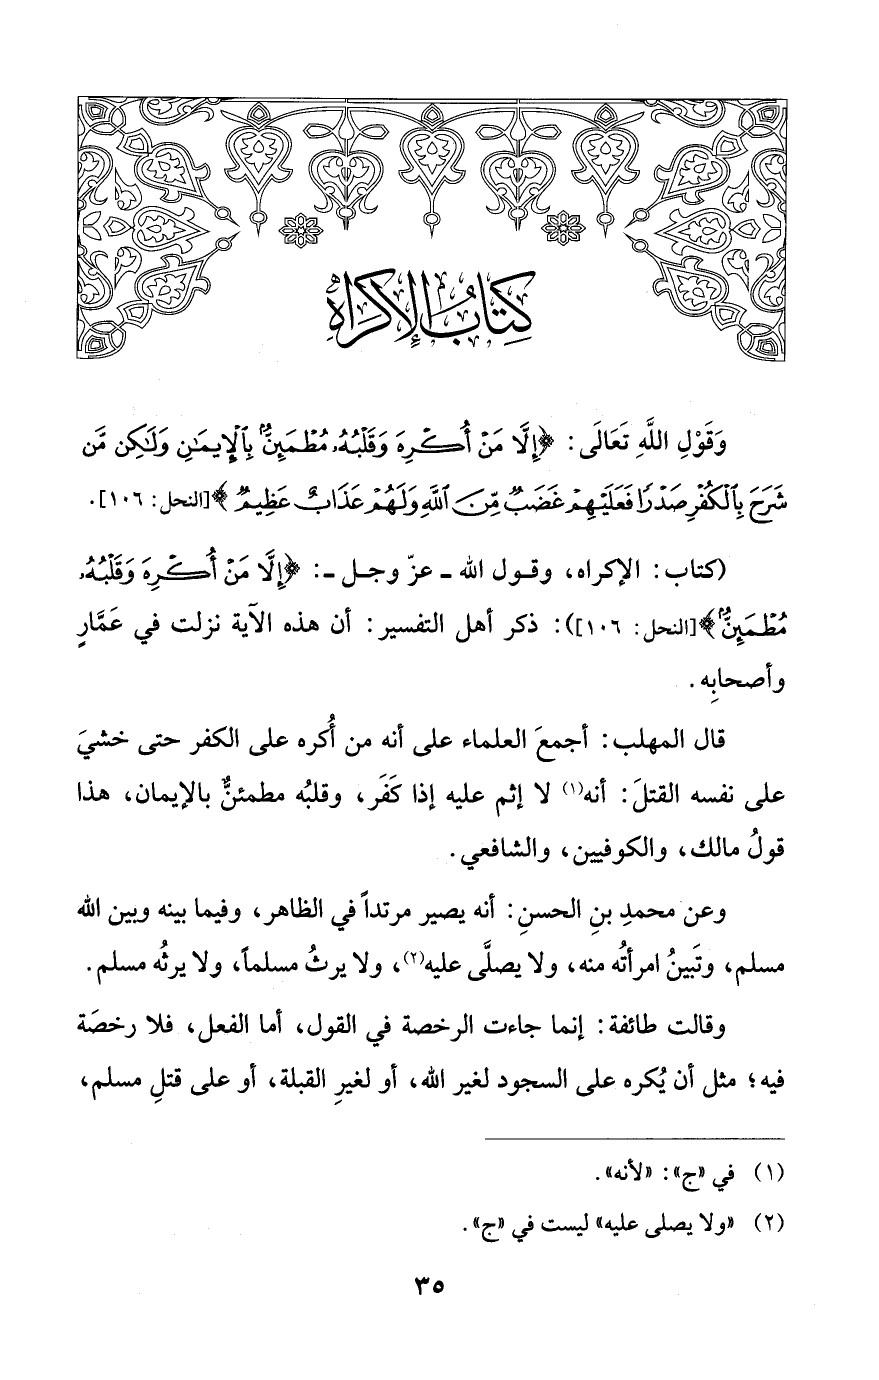 كِتَابُ الإِكْرَاهِ
وَقَوْلِ اللَّهِ تَعَالَى: ﴿إِلَّا مَنْ أُكْرِهَ وَقَلْبُهُۥ مُطْمَئِنٌّۢ بِٱلْإِيمَٰنِ وَلَٰكِن مَّن
شَرَحَ بِٱلْكُفْرِ صَدْرًا فَعَلَيْهِمْ غَضَبٌ مِّنَ ٱللَّهِ وَلَهُمْ عَذَابٌ عَظِيمٌ﴾ [النحل: ١٠٦].
(كتاب: الإكراه، وقول الله ـ عزّ وجل ـ: ﴿إِلَّا مَنْ أُكْرِهَ وَقَلْبُهُۥ
مُطْمَئِنٌّۢ﴾ [النحل: ١٠٦]): ذكر أهل التفسير: أن هذه الآية نزلت في عَمَّارٍ
وأصحابِه.
قال المهلب: أجمعَ العلماء على أنه من أُكره على الكفر حتى خشيَ
على نفسه القتلَ: أنه(١) لا إثم عليه إذا كَفَر، وقلبُه مطمئنٌّ بالإيمان، هذا
قولُ مالك، والكوفيين، والشافعي.
وعن محمدِ بنِ الحسنِ: أنه يصير مرتداً في الظاهر، وفيما بينه وبين الله
مسلم، وتَبينُ امرأتُه منه، ولا يصلَّى عليه(٢)، ولا يرثُ مسلماً، ولا يرثُه مسلم.
وقالت طائفة: إنما جاءت الرخصة في القول، أما الفعل، فلا رخصَة
فيه؛ مثل أن يُكره على السجود لغير الله، أو لغيرِ القبلة، أو على قتلِ مسلم،
(١) في «ج»: «لأنه».
(٢) «ولا يصلى عليه» ليست في «ج».
٣٥